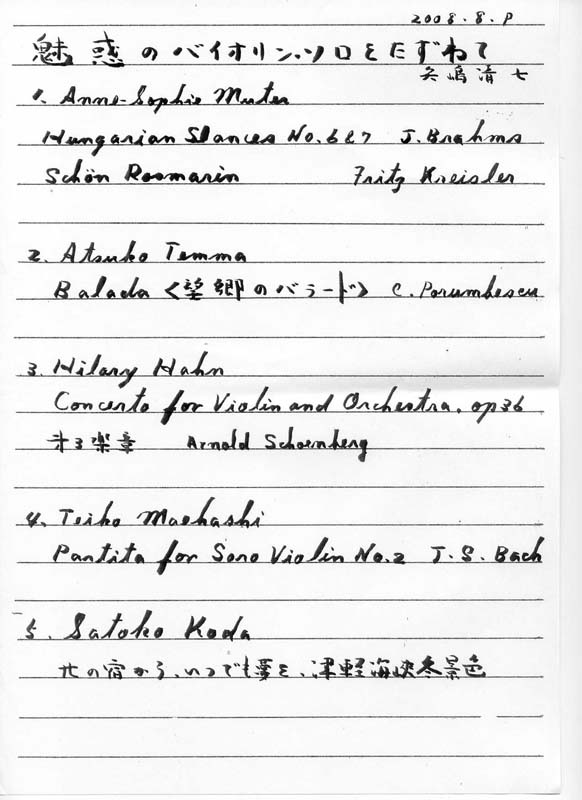 2008.8.P
魅惑のバイオリン・ソロをたずねて
矢嶋清七
1. Anne-Sophie Muter
Hungarian Dances No.6&7 J.Brahms
Schön Rosmarin Fritz Kreisler
2. Atsuko Temma
Balada〈望郷のバラード〉 C.Porumbescu
3. Hilary Hahn
Concerto for Violin and Orchestra, op36
第3楽章 Arnold Schoenberg
4. Teiko Maehashi
Partita for Soro Violin No.2 J.S.Bach
5. Satoko Koda
北の宿から、いつでも夢を、津軽海峡冬景色